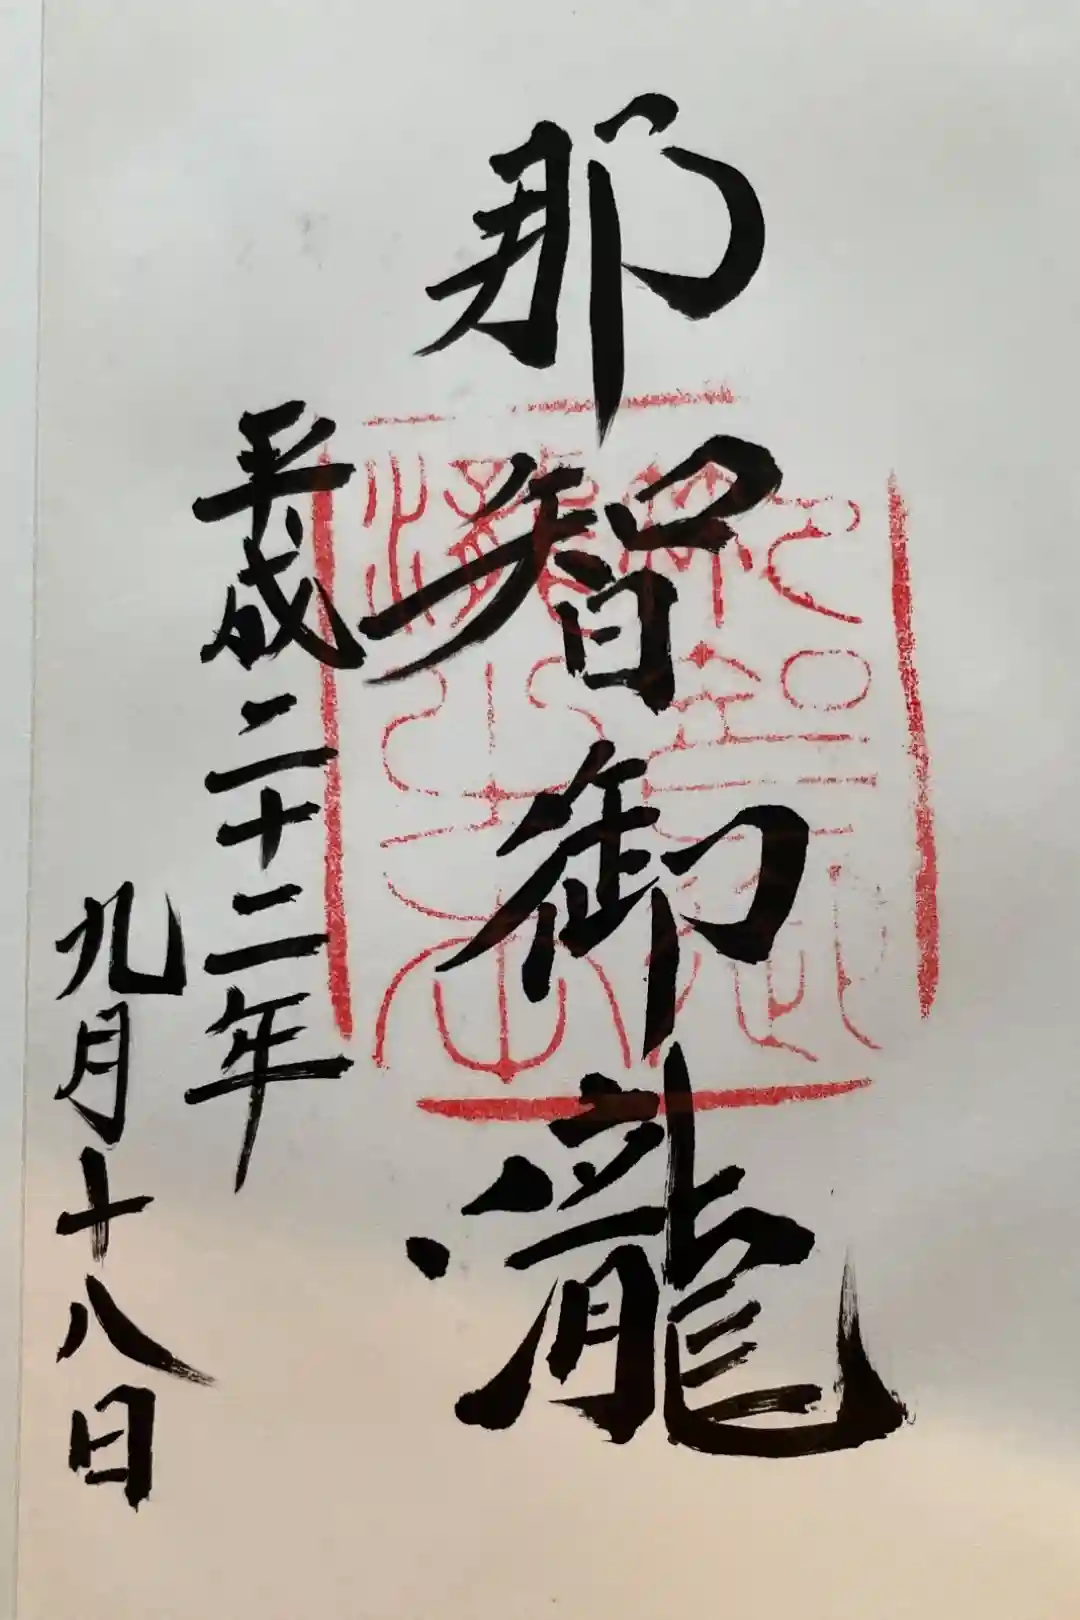 那智御瀧
平成二十二年
九月十八日